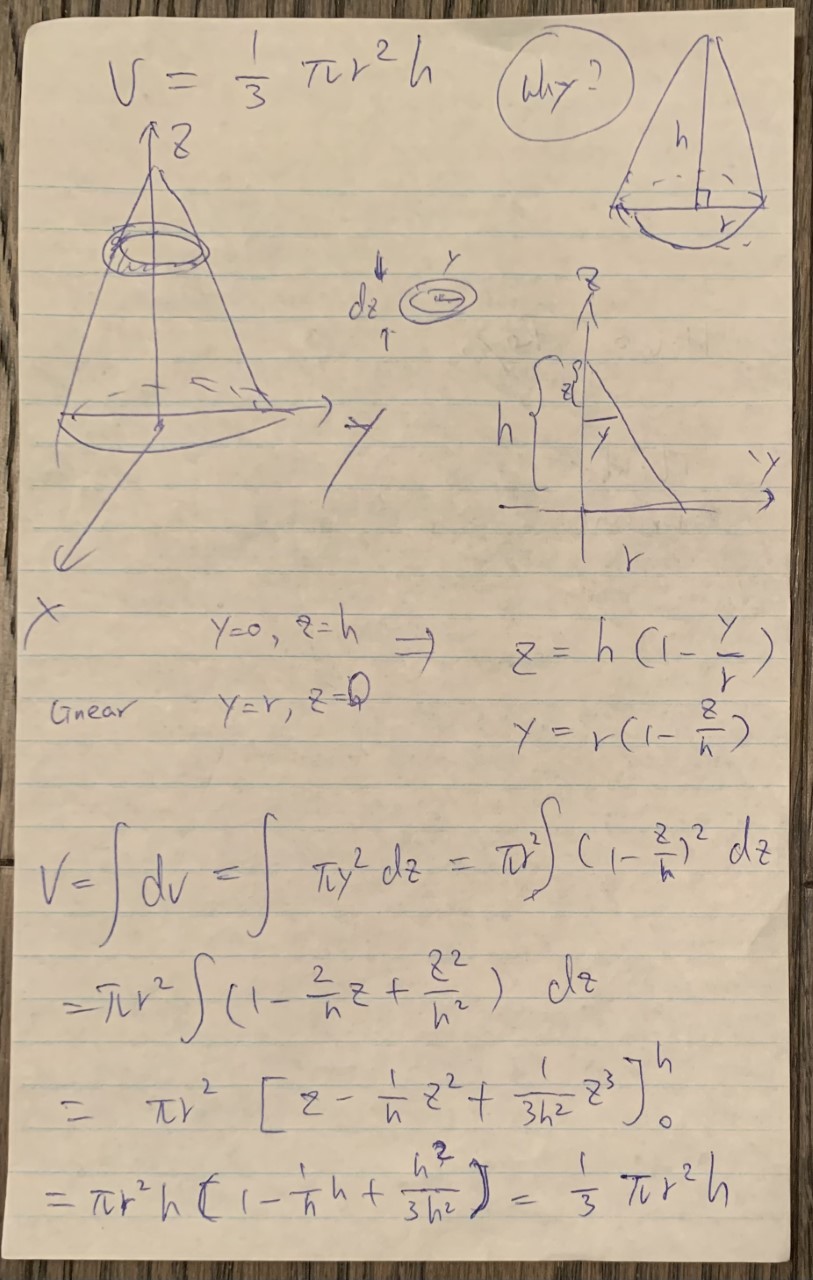 V = 1/3 πr²h
Why?
h
r
z
y
x
dz
y
z
h
z
y
y
r
y=0, z=h ⇒ z = h(1 - y/r)
linear y=r, z=0 y = r(1 - z/h)
V = ∫dv = ∫ πy² dz = πr² ∫ (1 - z/h)² dz
= πr² ∫ (1 - 2/h z + z²/h²) dz
= πr² [z - 1/h z² + 1/3h² z³]₀ʰ
= πr²h [1 - 1/h h + h²/3h²] = 1/3 πr²h